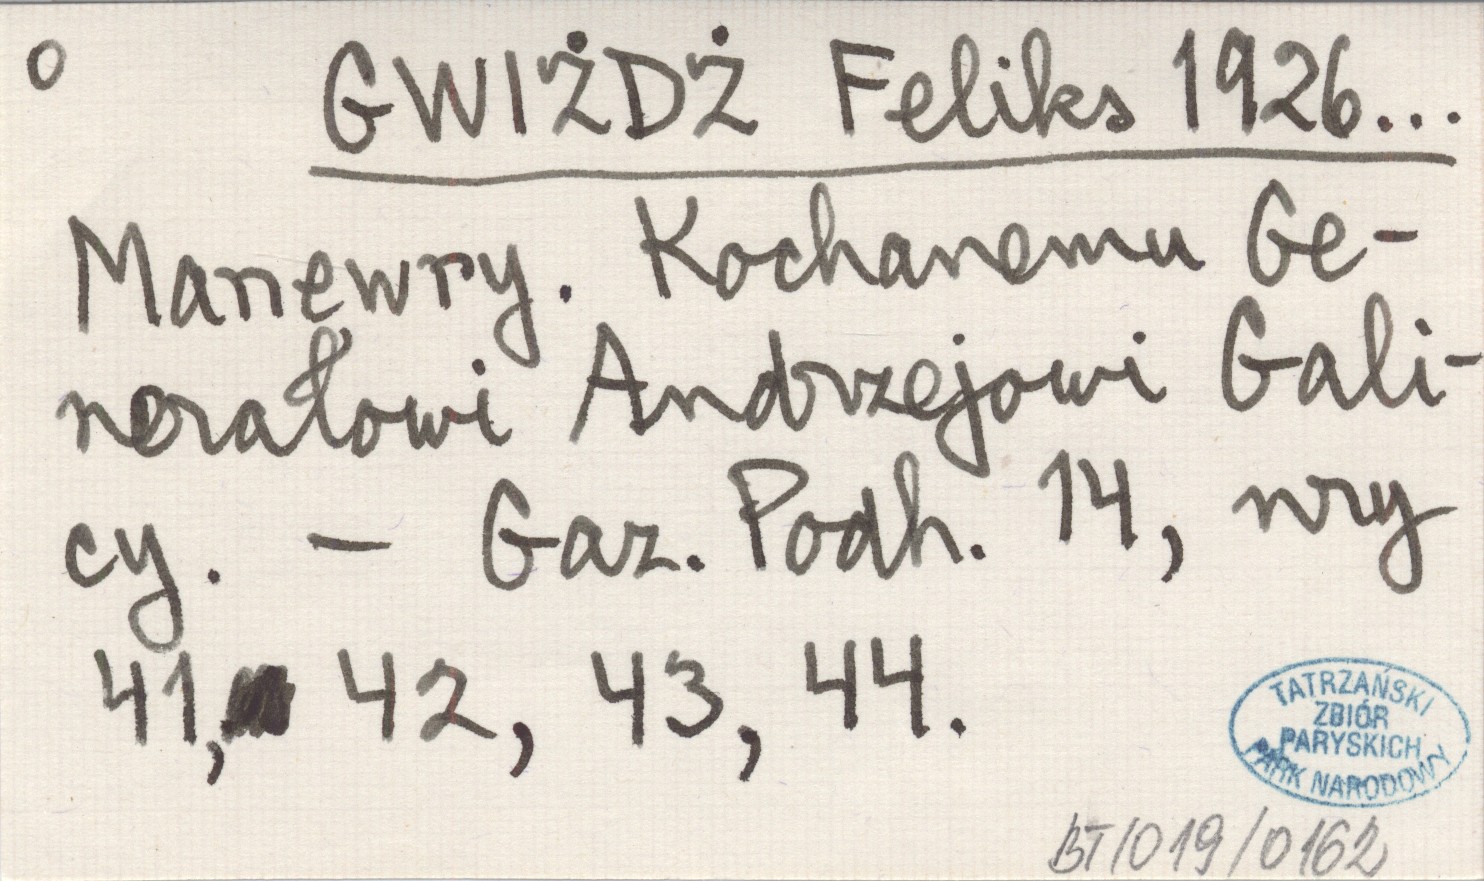 o GWIŻDŻ Feliks 1926...
Manewry. Kochanemu Ge-
nerałowi Andrzejowi Gali-
cy. — Gaz. Podh. 14, nry
41, 42, 43, 44.
TATRZAŃSKI
ZBIÓR
PARYSKICH
PARK NARODOWY
BT/019/0162